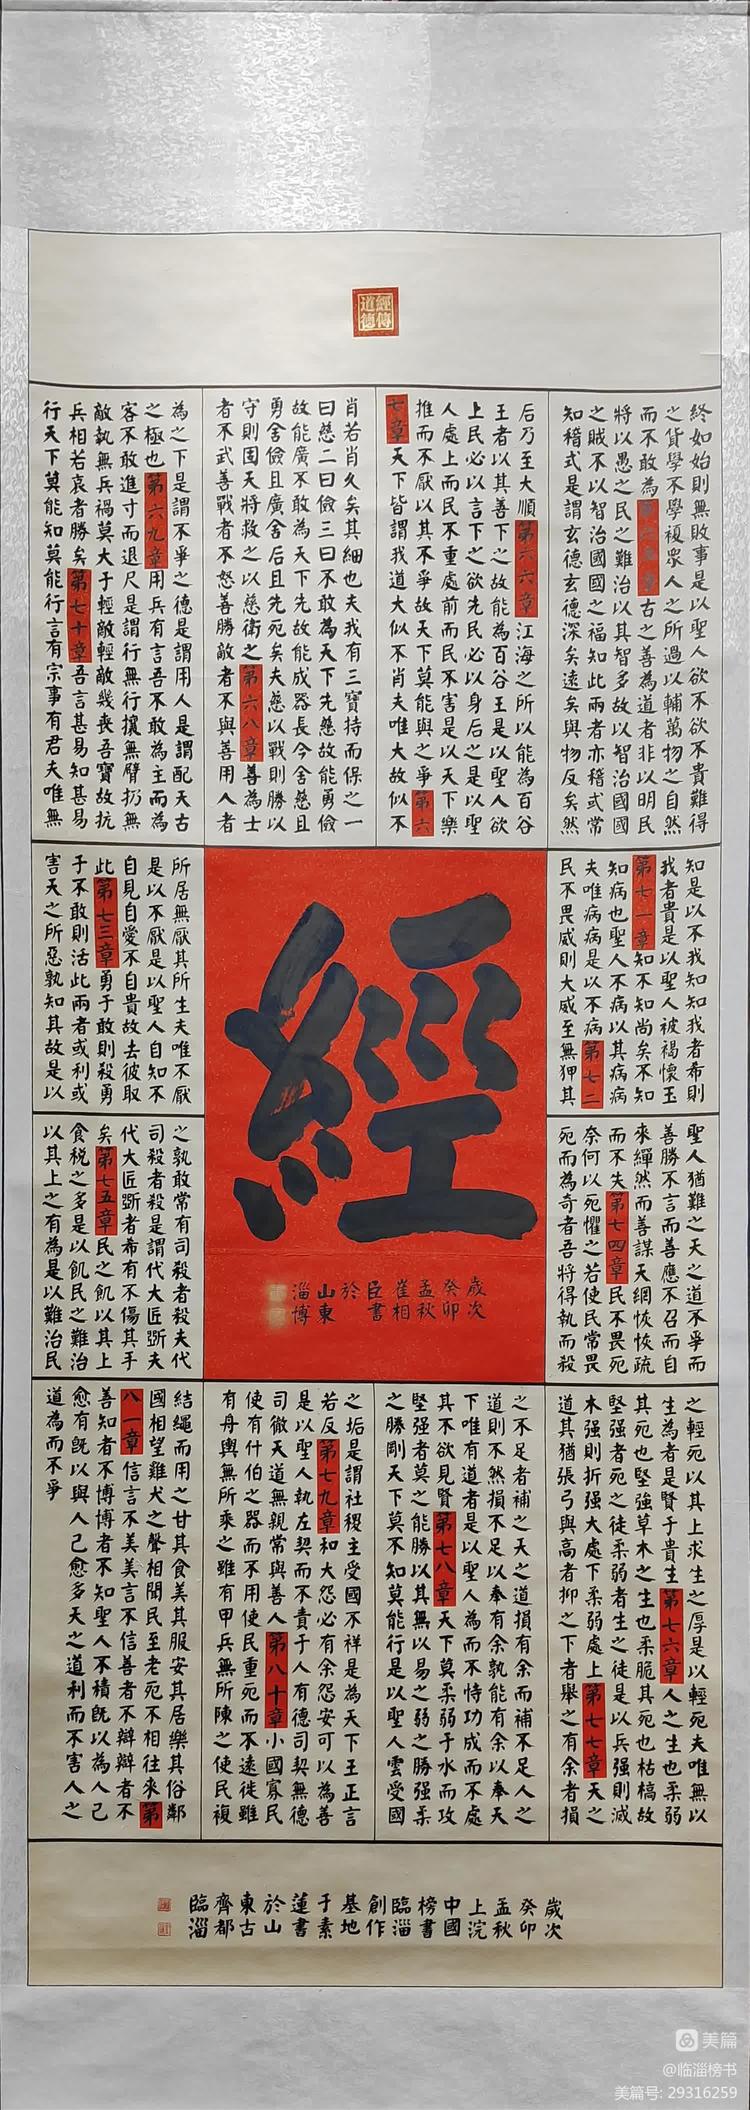 經傳
道德
終如始則無敗事是以聖人欲不欲不貴難得
之貨學不學複眾人之所過以輔萬物之自然
而不敢為第六五章古之善為道者非以明民
將以愚之民之難治以其智多故以智治國國
之賊不以智治國國之福知此兩者亦稽式常
知稽式是謂玄德玄德深矣遠矣與物反矣然
后乃至大順第六六章江海之所以能為百谷
王者以其善下之故能為百谷王是以聖人欲
上民必以言下之欲先民必以身后之是以聖
人處上而民不重處前而民不害是以天下樂
推而不厭以其不爭故天下莫能與之爭第六
七章天下皆謂我道大似不肖夫唯大故似不
肖若肖久矣其細也夫我有三寶持而保之一
曰慈二曰儉三曰不敢為天下先慈故能勇儉
故能廣不敢為天下先故能成器長今舍慈且
勇舍儉且廣舍后且先死矣夫慈以戰則勝以
守則固天將救之以慈衛之第六八章善為士
者不武善戰者不怒善勝敵者不與善用人者
為之下是謂不爭之德是謂用人是謂配天古
之極也第六九章用兵有言吾不敢為主而為
客不敢進寸而退尺是謂行無行攘無臂扔無
敵執無兵禍莫大于輕敵輕敵幾喪吾寶故抗
兵相若哀者勝矣第七十章吾言甚易知甚易
行天下莫能知莫能行言有宗事有君夫唯無
知是以不我知知我者希則
我者貴是以聖人被褐懷玉
第七一章知不知尚矣不知
知病也聖人不病以其病病
夫唯病病是以不病第七二
民不畏威則大威至無狎其
所居無厭其所生夫唯不厭
是以不厭是以聖人自知不
自見自愛不自貴故去彼取
此第七三章勇于敢則殺勇
于不敢則活此兩者或利或
害天之所惡孰知其故是以
聖人猶難之天之道不爭而
善勝不言而善應不召而自
來繟然而善謀天網恢恢疏
而不失第七四章民不畏死
奈何以死懼之若使民常畏
死而為奇者吾將得執而殺
之孰敢常有司殺者殺夫代
司殺者殺是謂代大匠斲夫
代大匠斲者希有不傷其手
矣第七五章民之飢以其上
食税之多是以飢民之難治
以其上之有為是以難治民
之輕死以其上求生之厚是以輕死夫唯無以
生為者是賢于貴生第七六章人之生也柔弱
其死也堅強草木之生也柔脆其死也枯槁故
堅强者死之徒柔弱者生之徒是以兵强則滅
木强則折强大處下柔弱處上第七七章天之
道其猶張弓與高者抑之下者舉之有余者損
之不足者補之天之道損有余而補不足人之
道則不然損不足以奉有余孰能有余以奉天
下唯有道者是以聖人為而不恃功成而不處
其不欲見賢第七八章天下莫柔弱于水而攻
堅强者莫之能勝以其無以易之弱之勝强柔
之勝剛天下莫不知莫能行是以聖人雲受國
之垢是謂社稷主受國不祥是為天下王正言
若反第七九章和大怨必有余怨安可以為善
是以聖人執左契而不責于人有德司契無德
司徹天道無親常與善人第八十章小國寡民
使有什伯之器而不用使民重死而不遠徙雖
有舟輿無所乘之雖有甲兵無所陳之使民複
結繩而用之甘其食美其服安其居樂其俗鄰
國相望雞犬之聲相聞民至老死不相往來第
八一章信言不美美言不信善者不辯辯者不
善知者不博博者不知聖人不積既以為人己
愈有既以與人己愈多天之道利而不害人之
道為而不爭
經
歲次
癸卯
孟秋
崔相
臣書
於
山東
淄博
歲次
癸卯
孟秋
上浣
中國
榜書
臨淄
創作
基地
于素
蓮書
於山
東古
齊都
臨淄
美篇
@临淄榜书
美篇号: 29316259